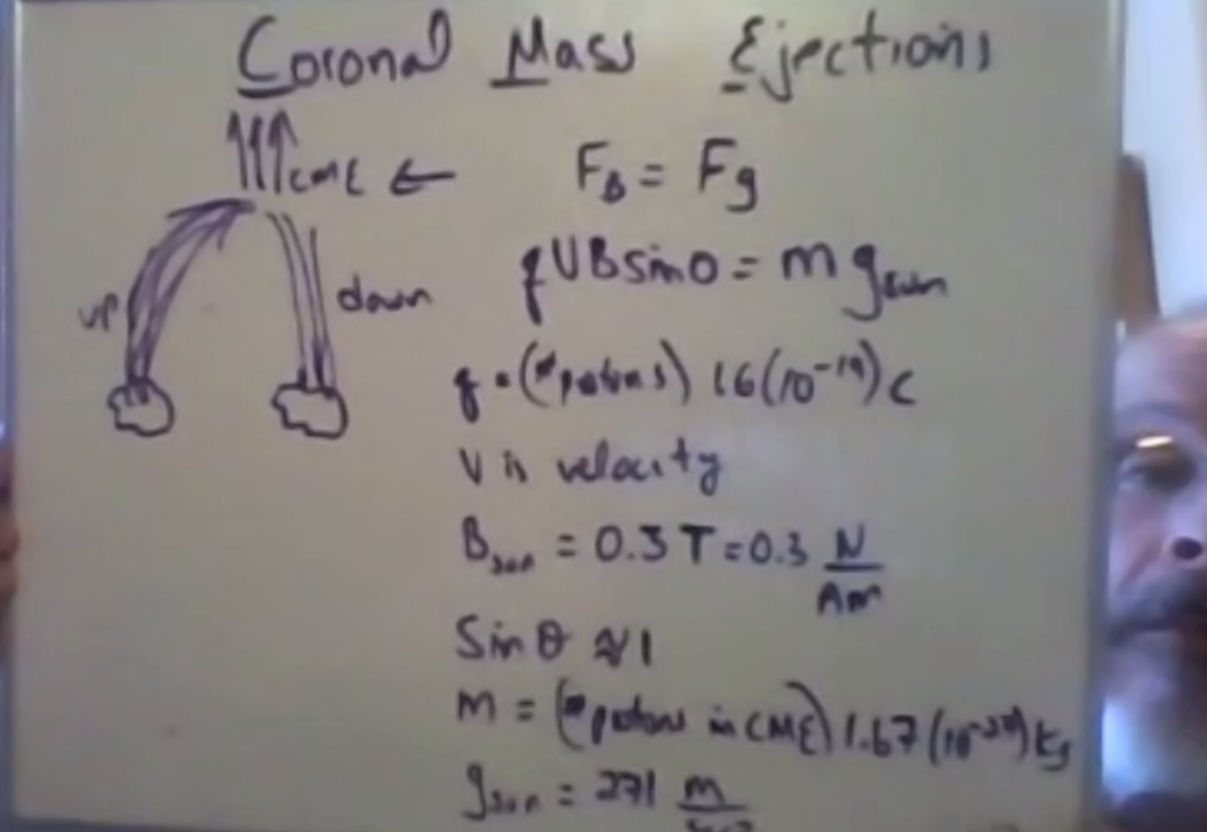 Coronal Mass Ejections
CME ←
up
down
F_B = Fg
qVB sin θ = m g_sun
q = (# protons) 1.6(10^-19) C
V is velocity
B_sun = 0.3 T = 0.3 N/Am
Sin θ ≈ 1
m = (# protons in CME) 1.67(10^-27) kg
g_sun = 271 m/